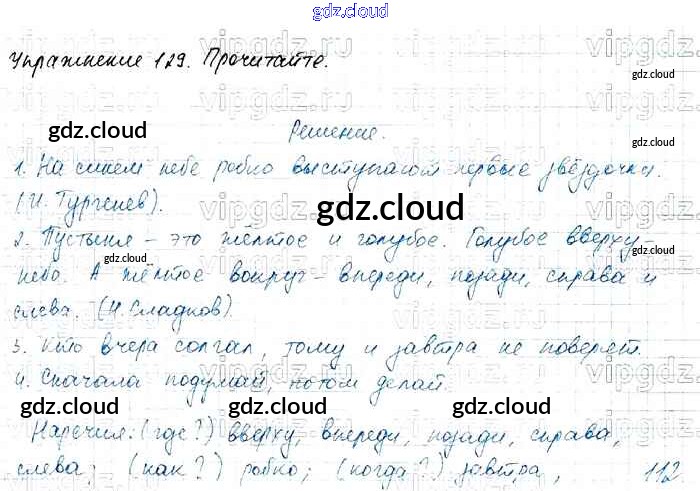 gdz.cloud
Упражнение 129. Прочитайте.
gdz.cloud
gdz.cloud
Решение.
1. На синем небе робко выступают первые звёздочки.
(И. Тургенев).
gdz.cloud
2. Пустыня – это жёлтое и голубое. Голубое вверху –
небо. А жёлтое вокруг – впереди, позади, справа и
gdz.cloud
gdz.cloud
слева. (Н. Сладков).
3. Кто вчера солгал, тому и завтра не поверят.
4. Сначала подумай, потом делай.
gdz.cloud gdz.cloud gdz.cloud
Наречия: (где?) вверху, впереди, позади, справа,
слева; (как?) робко; (когда?) завтра, 112
gdz.cloud